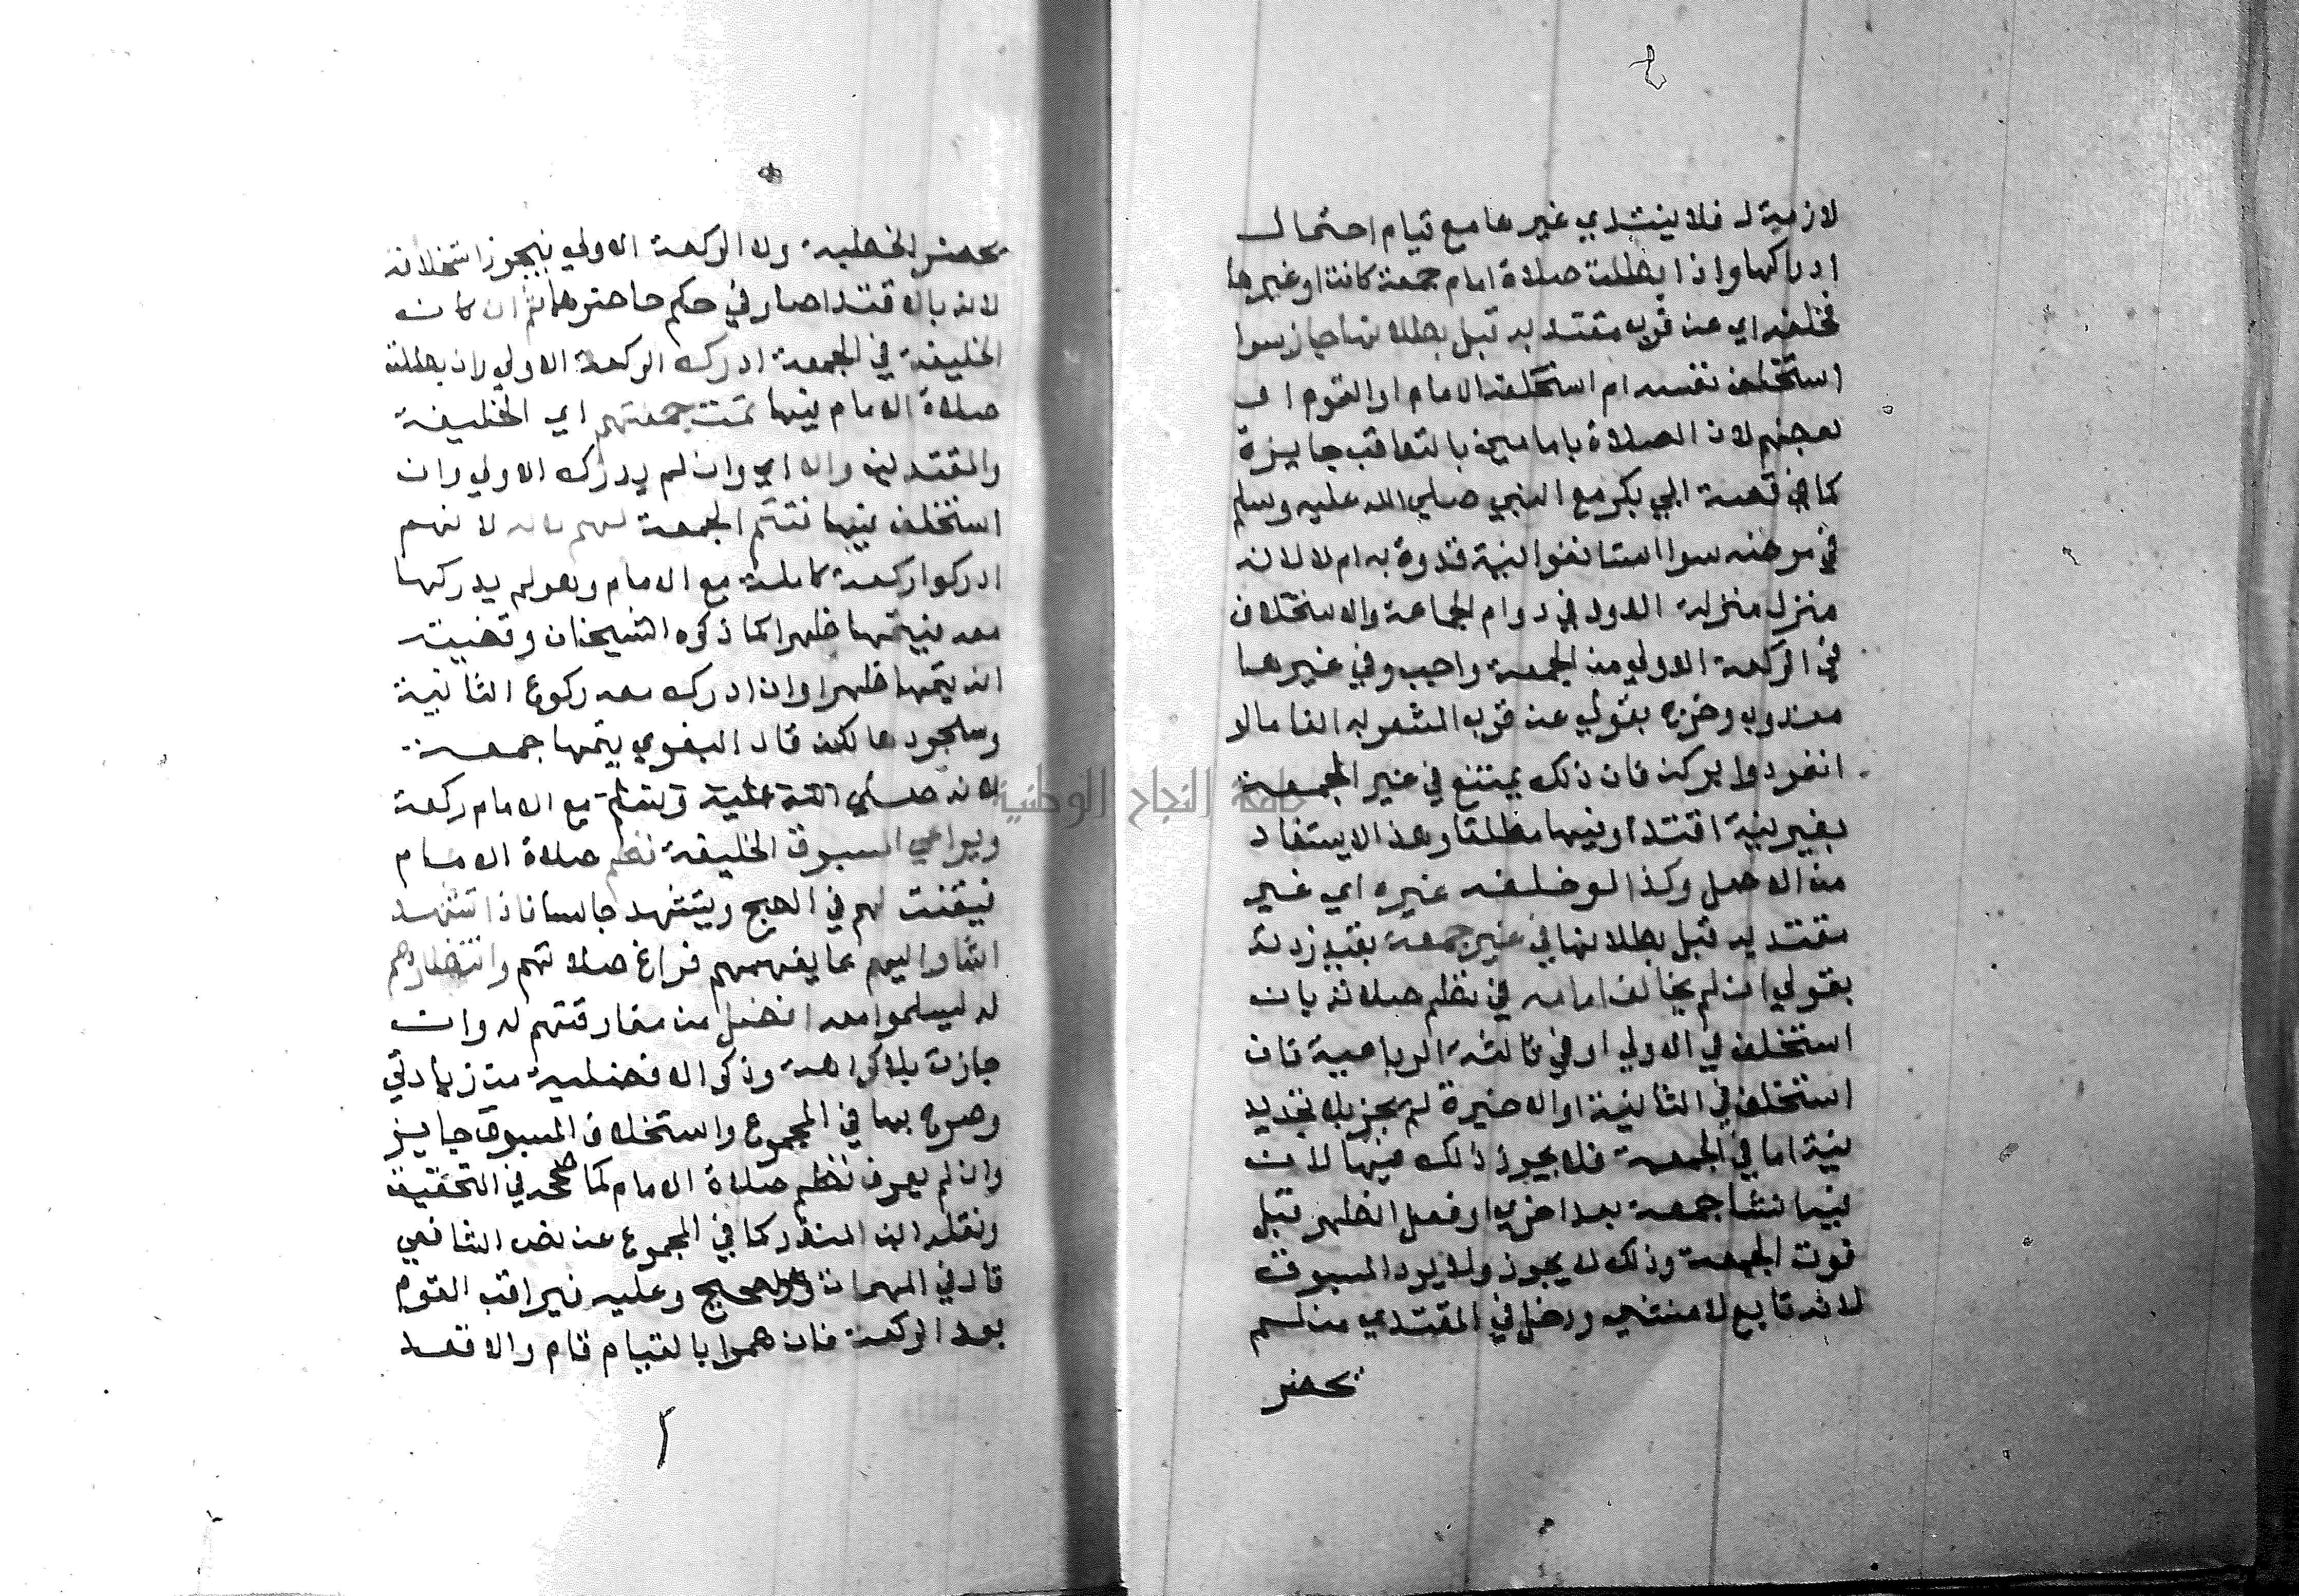 لازمة له فلا يبتدي غيرها مع قيام احتمال
ادراكها واذا بطلت صلاة امام جمعة كانت او غيرها
فخلفه اي عن قرب مقتد به قبل بطلانها جاز سوا
استخلف نفسه ام استخلفه الامام او القوم او
بعضهم لان الصلاة بامامين بالتعاقب جايزة
كما في قصة ابي بكر مع النبي صلي الله عليه وسلم
في مرضه سوا استانفوا نية قدوة به ام لا لانه
منزل منزلة الاول في دوام الجماعة والاستخلاف
في الركعة الاولي من الجمعة واجب وفي غيرها
مندوب وخرج بقولي عن قرب المشعر به الفا ما لو
انفردوا بركن فان ذلك يمتنع في غير الجمعة
بغير نية اقتدا وفيها مطلقا وهذا لا يستفاد
من الاصل وكذا لو خلفه غيره اي غير
مقتد به قبل بطلانها في غير جمعة بقيد زدته
بقولي ان لم يخالف امامه في نظم صلاته بان
استخلف في الاولي او في ثالثة الرباعية فان
استخلف في الثانية او الاخيرة لم يجز بلا تجديد
نية اما في الجمعة فلا يجوز ذلك فيها لان
فيها انشا جمعة بعد اخري او فعل الظهر قبل
فوت الجمعة وذلك لا يجوز ولا يرد المسبوق
لانه تابع لا منشي ودخل في المقتدي من لم
يحضر
يحضر الخطبة ولا الركعة الاولي فيجوز استخلافه
لانه بالاقتدا صار في حكم حاضرهما ثم ان كان
الخليفة في الجمعة ادرك الركعة الاولي وان بطلت
صلاة الامام فيها تمت جمعتهم اي الخليفة
والمقتدين والا اي وان لم يدرك الاولي وان
استخلف فيها فتتم الجمعة لهم لا له لانهم
ادركوا ركعة كاملة مع الامام وهو لم يدركها
معه فيتمها ظهرا كما ذكره الشيخان وقضيته
انه يتمها ظهرا وان ادرك معه ركوع الثانية
وسجودها لكن قال البغوي يتمها جمعة
لانه صلي مع الامام ركعة
ويراعي المسبوق الخليفة نظم صلاة الامام
فيقنت لهم في الصبح ويتشهد جالسا فاذا تشهد
اشار اليهم بما يفهمهم فراغ صلاتهم وانتظارهم
له ليسلموا معه افضل من مفارقتهم له وان
جازت بلا كراهة وذكر الافضلية من زيادتي
وصرح بها في المجموع واستخلاف المسبوق جايز
وان لم يعرف نظم صلاة الامام كما صححه في التحقيق
ونقله ابن المنذر كما في المجموع عن نص الشافعي
قال في المهمات وهو الصحيح وعليه فيراقب القوم
بعد الركعة فان هموا بالقيام قام والا قعد
جامعة النجاح الوطنية